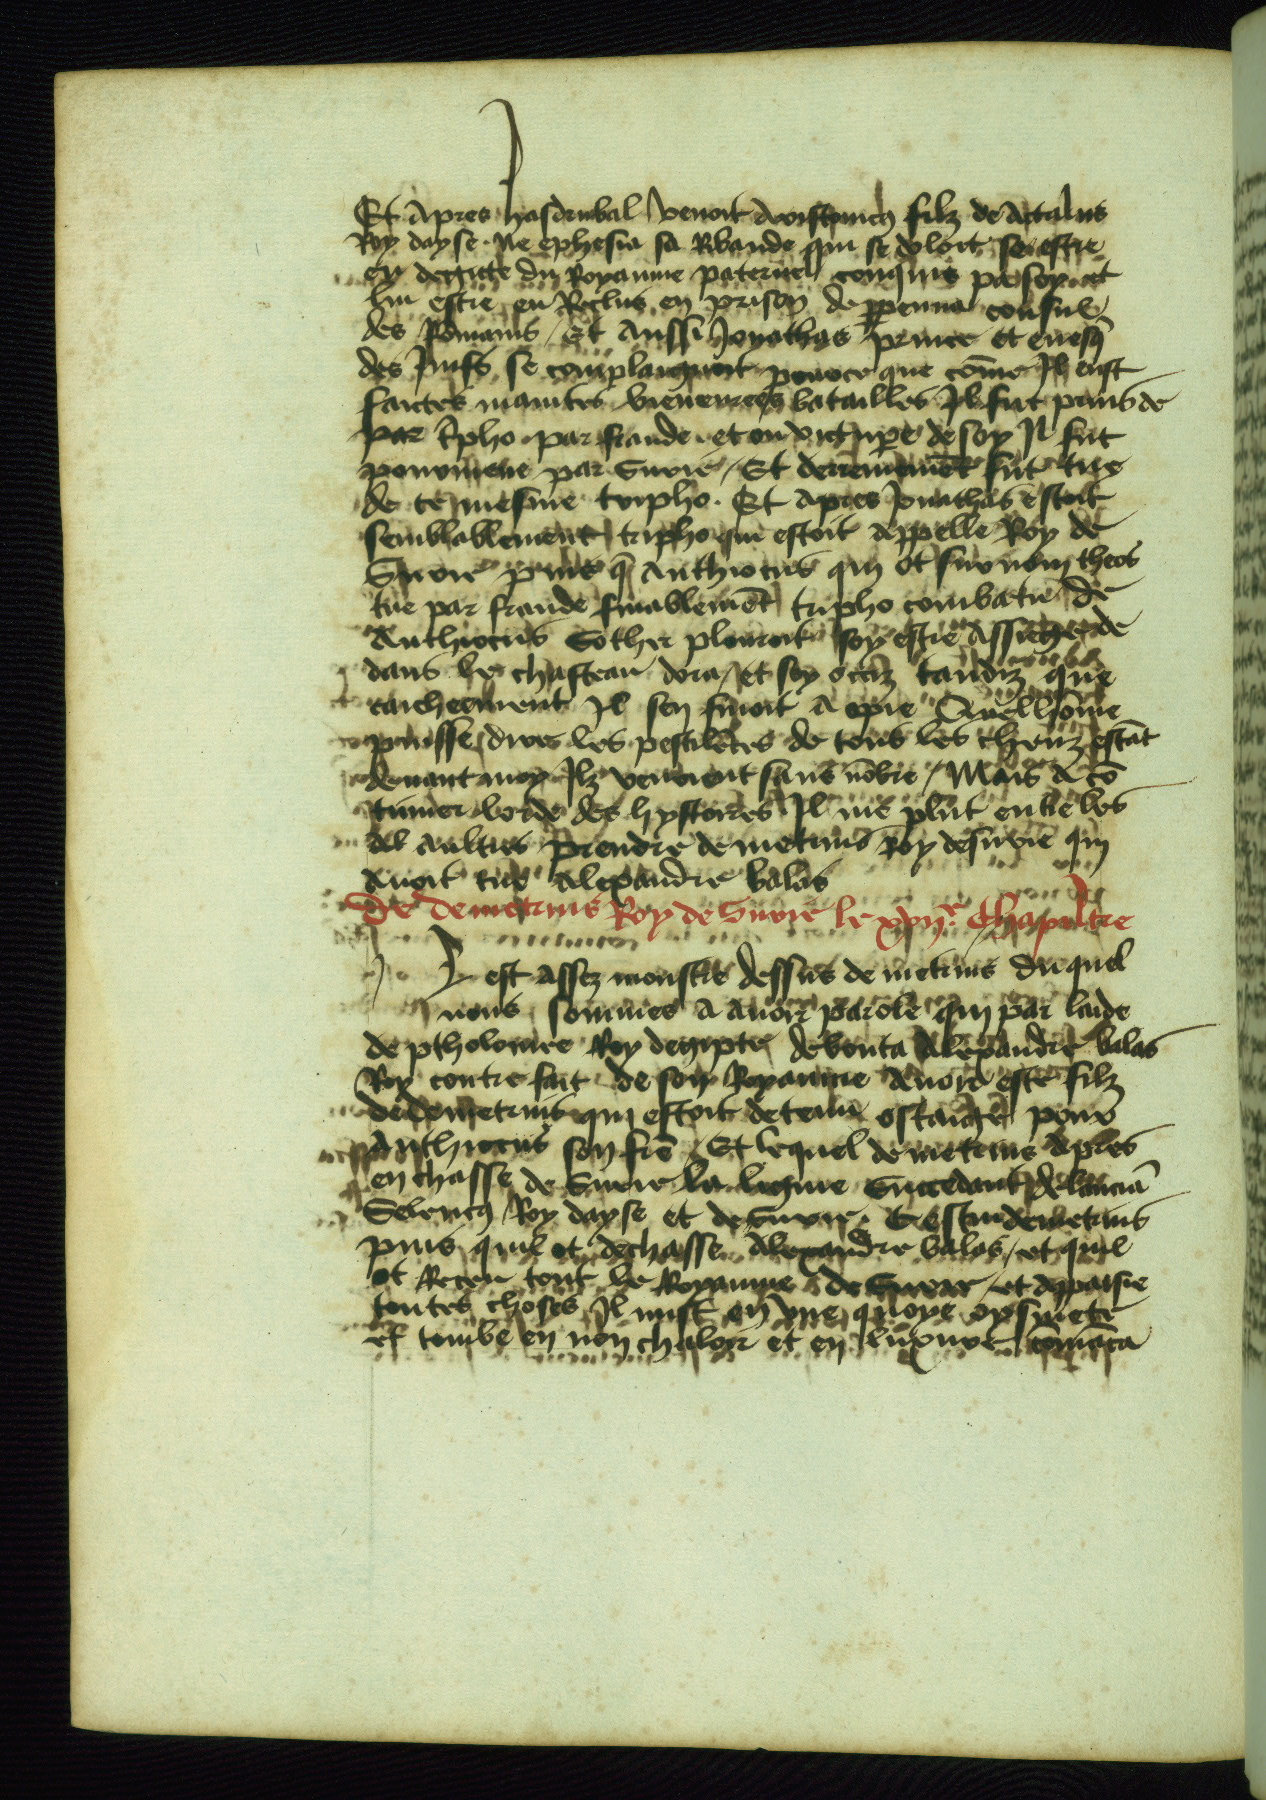 Et apres hasdrubal venoit Aristonicꝰ filz de Actalus
Roy dayse. ne ephesia sa Rbaude qui se doloit soi estre
en degitte du Royaume paternel conquis p̲ soy et
lui estre en Reclus en prison de perpenna consul
des Romains / Et aussi Jonathas prince et euesq̄
des Juifs se complaignoit pource que cōme Il eust
faictes maintes bieneurees batailles Il fut prins de
par t'pho par fraude et en vitupe de soy Il fut
pourmene par Surie / Et derrenierement fut tue
de ce mesme tripho. Et apres Jonathas estoit
semblablement tripho qui estoit appelle Roy de
Surie puis q̄ Anthiocus qui ot surnom theos
tue par fraude finablemēt tripho combatu de
Anthiocus Sother plouroit soy estre assiege de
dans le chasteau dora / et soy occiz tandiz que
cacheement Il sen fuioit A apie Quel hōme
puisse dire les pestilēces de tous les cheuz estāt
deuant moy Ilz venoient sans nōbre / Mais A cō
tinuer lorde des hystoires Il me plut entre les
al aultres prendre demetrius Roy de surie qui
Auoit tue Alexandre balas
De demetrius Roy de Surie le xviiᵉ. Chapiltre
Il est assez monstre dessus demetrius duquel
nous sommes a auoir parole qui par laide
de ptholomee Roy degipte debouta Alexandre balas
Roy contrefait de son Royaume Auoir este filz
de demetrius qui estoit detenu ostaige pour
Anthiocus son frē / Et lequel demetrius apres
enchasse de Surie la lignie succedant de lanciā
Seleucꝰ Roy dayse et de Surie. Cestui demetrius
puis quil ot dechasse Alexandre balas / et quil
ot Receu tout le Royaume de Surie / et apaisie
toutes choses Il mist en vne quoye oysiuete
et tombe en non chaloir et en luxure comēca